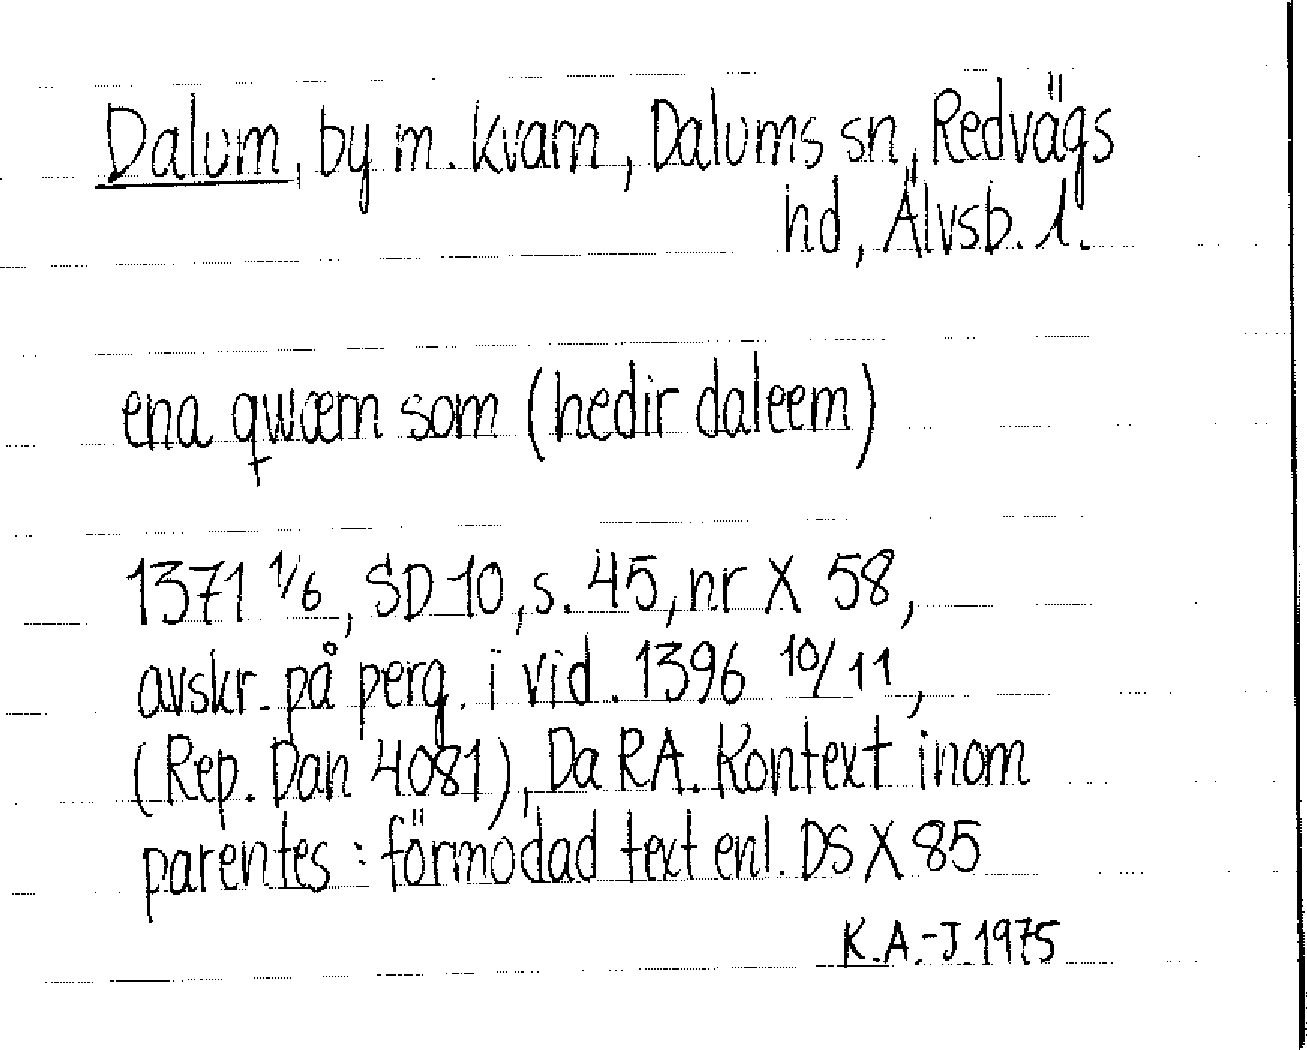 Dalum, by m. kvarn, Dalums sn, Redvägs
hd, Älvsb. l.
ena qwærn som (hedir daleem)
1371 1/6, SD 10, s. 45, nr X 58,
avskr. på perg. i vid. 1396 10/11,
(Rep. Dan 4081), Da RA. Kontext inom
parentes: förmodad text enl. DS X 85
K.A.-J. 1975